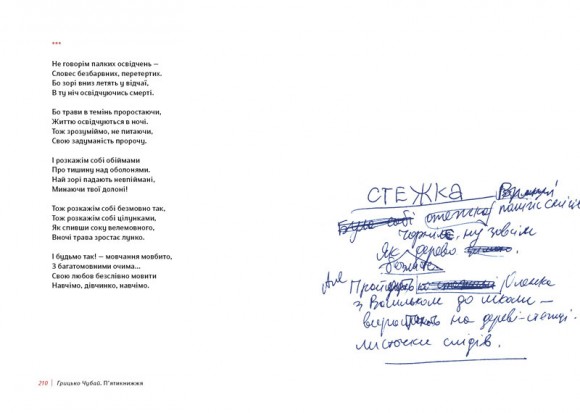 ***
Не говорім палких освідчень —
Словес безбарвних, перетертих.
Бо зорі вниз летять у відчаї,
В ту ніч освідчуючись смерті.
Бо трави в темінь проростаючи,
Життю освідчуються в ночі.
Тож зрозуміймо, не питаючи,
Свою задуманість пророчу.
І розкажім собі обіймами
Про тишину над оболонями.
Най зорі падають невпіймані,
Минаючи твої долоні!
Тож розкажім собі безмовно так,
Тож розкажім собі цілунками,
Як спивши соку велемовного,
Вночі трава зростає лунко.
І будьмо так! — мовчання мовбито,
З багатомовними очима...
Свою любов безслівно мовити
Навчімо, дівчинко, навчімо.
210 | Грицько Чубай. П'ятикнижжя
СТЕЖКА
Буде собі стежка
чорніє, ну зовсім
Як дерево
Але Пройде Оленка
з Васильком до школи —
виростають на дереві-стежці
листочки слідів.